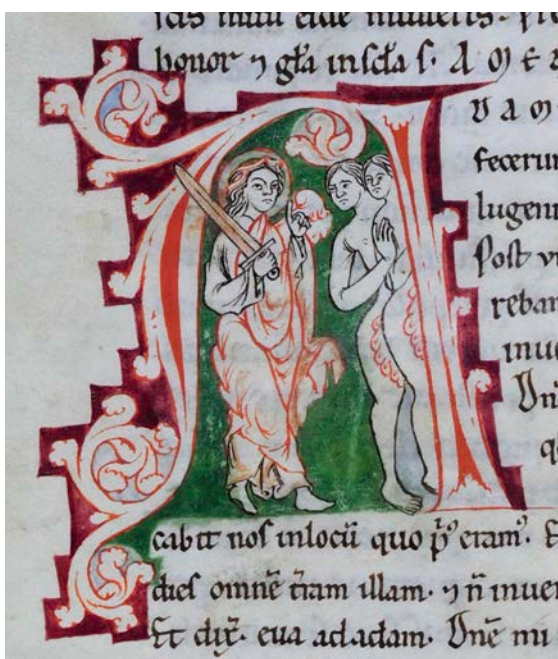 honor ⁊ gła inscła s. A O) E
U A O)
fecerun
lugen
Post
reba
inue
Dn
q
cabit nos inlocū quo p̄ eram᷒. E
dies omnē t̄ram illam. ⁊ n̄ inuen
Et dix̄. eua ad adam. Dn̄e mi